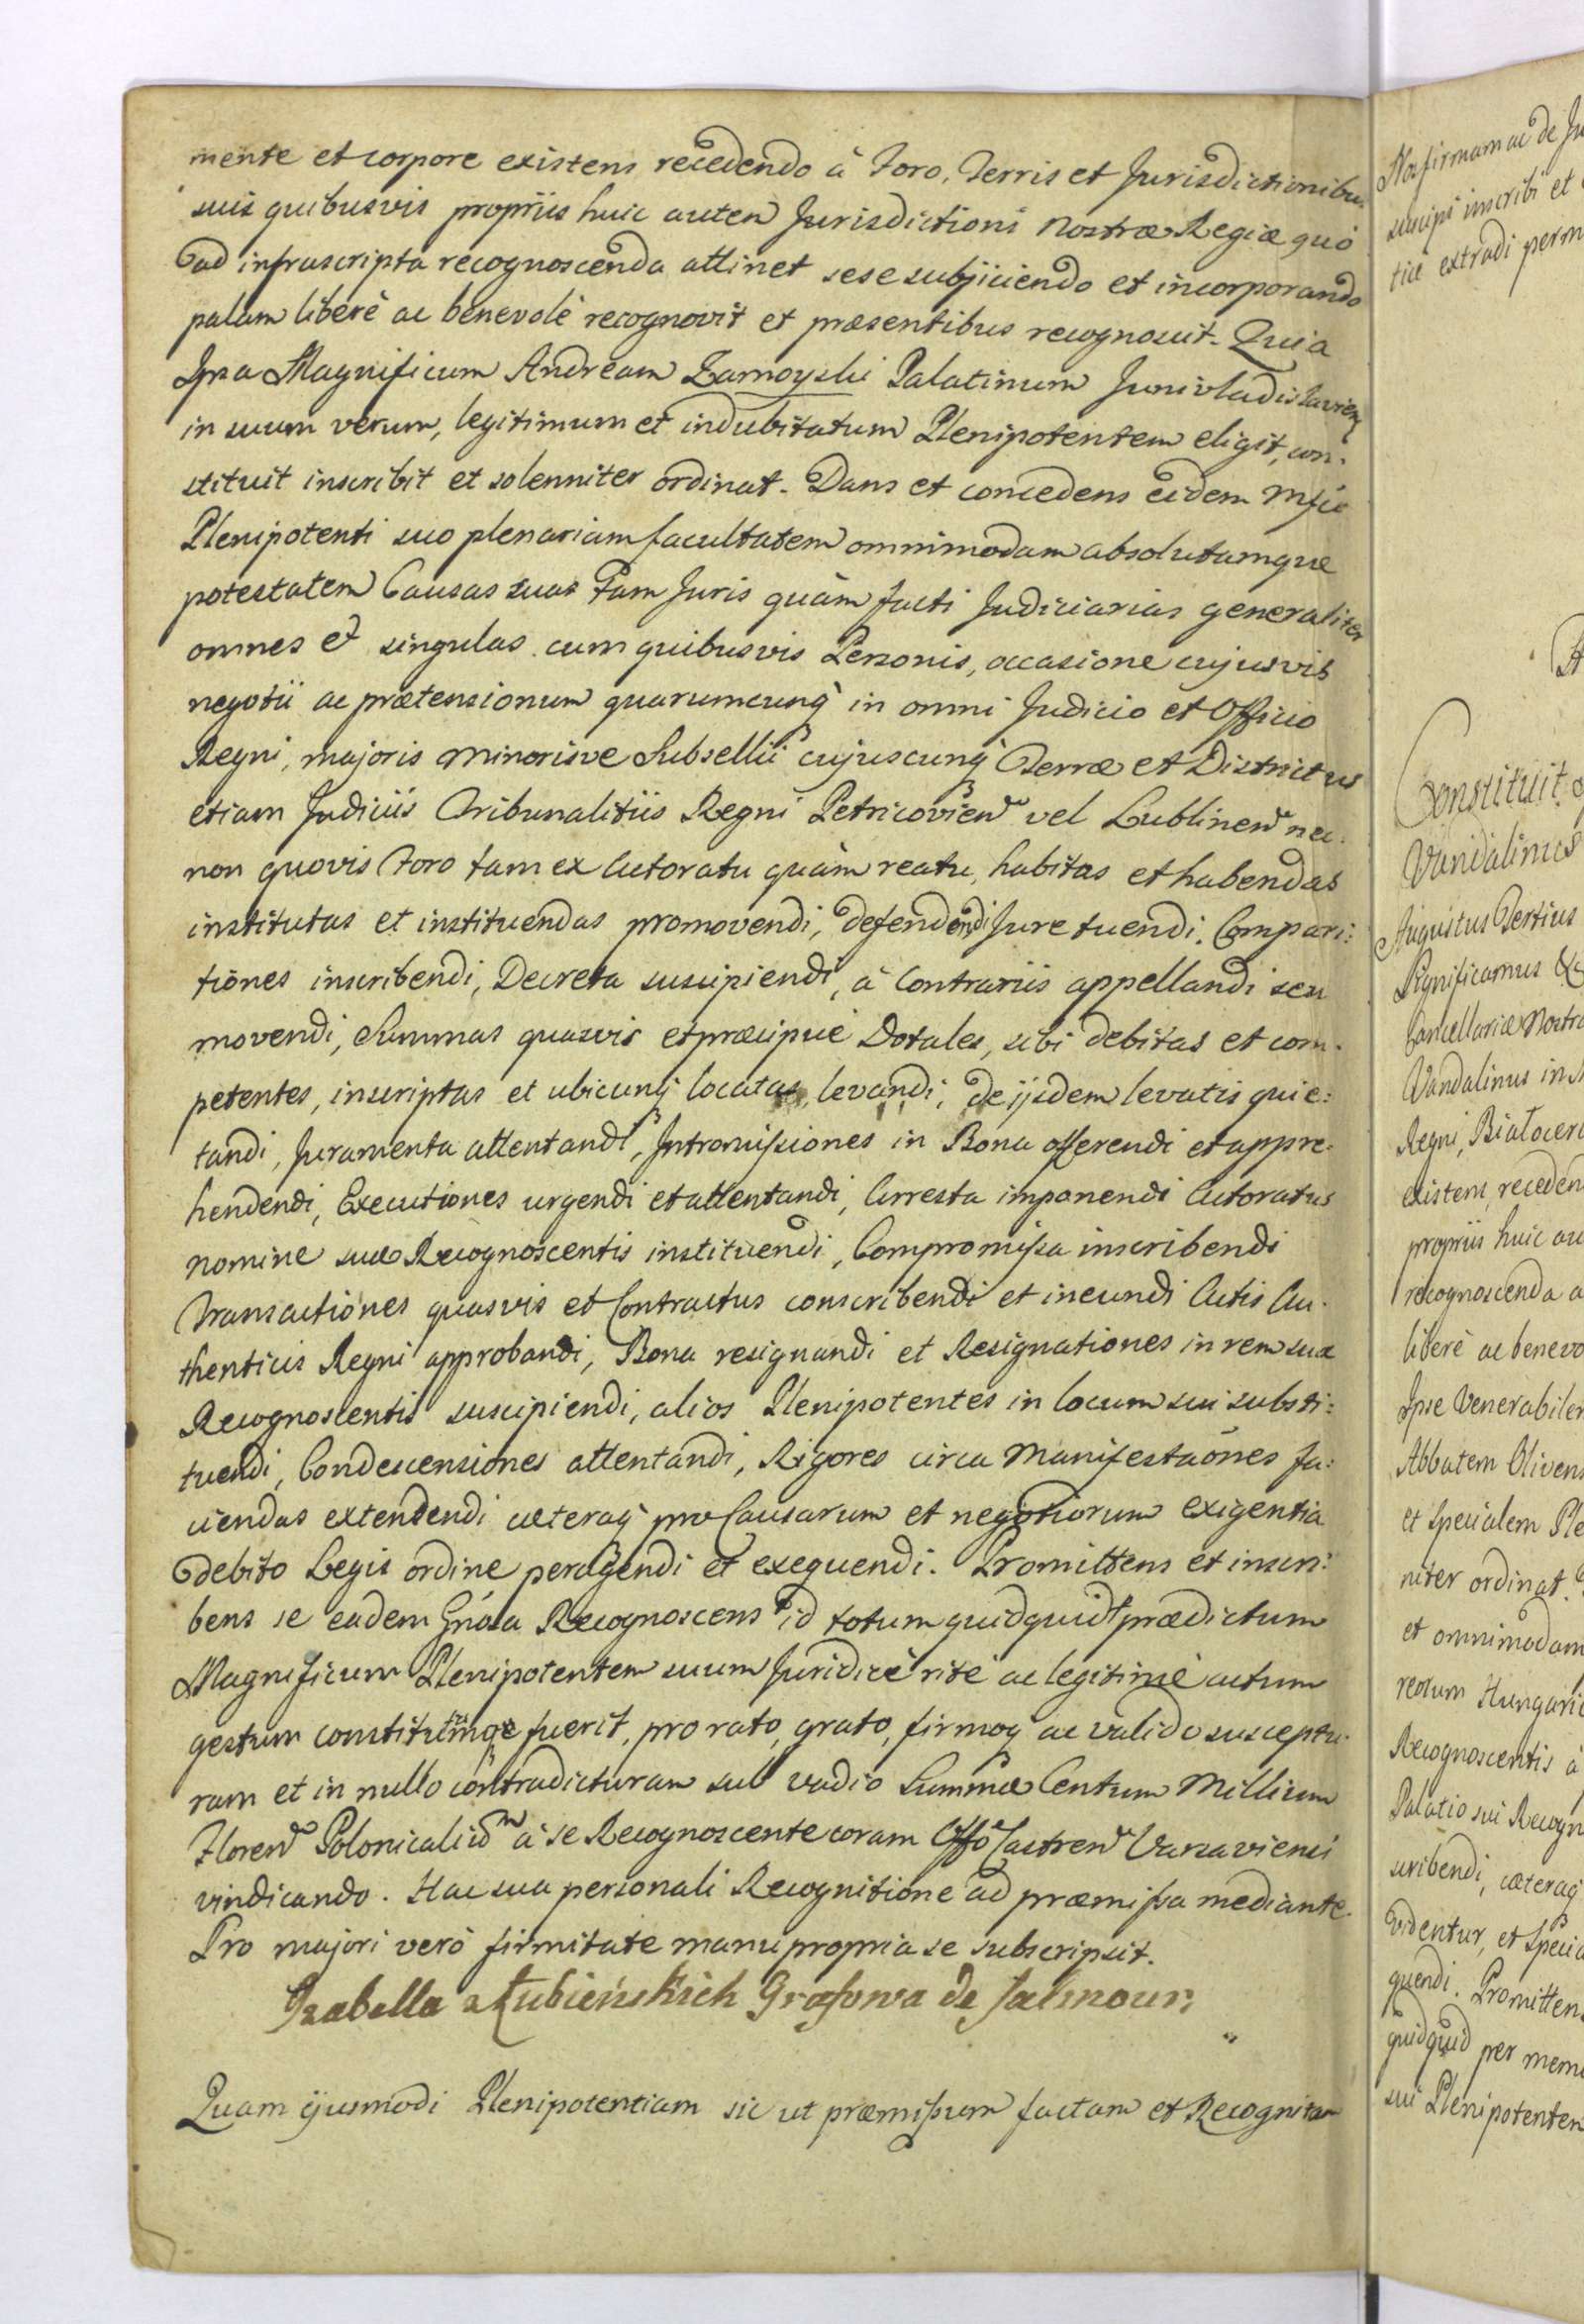 mente et corpore existens recedendo à Foro, Terris et Jurisdictionibus
suis quibusvis propriis huic autem Jurisdictioni Nostræ Regiæ quò
ad infrascripta recognoscenda attinet sese subjiciendo et incorporando
palam liberè ac benevolè recognovit et præsentibus recognoscit. Quia
Ipsa Magnificum Andream Zamoyski Palatinum Junivladislavien
in suum verum, legitimum et indubitatum Plenipotentem eligit, con:
stituit inscribit et solenniter ordinat. Dans et concedens eidem Mfico
Plenipotenti suo plenariam facultatem omnimodam absolutamque
potestatem Causas suas tam Juris quàm facti Judiciarias generaliter
omnes et singulas cum quibusvis Personis, occasione cujusvis
negotii ac prætensionum quarumcunq in omni Judicio et Officio
Regni, majoris minorisve Subsellii cujuscunq Terræ et Districtus
etiam Judiciis Tribunalitiis Regni Petricovien vel Lublinen nec:
non quovis Foro tam ex Actoratu quàm reatu, habitas et habendas
institutas et instituendas promovendi, defendendi Jure tuendi. Compari:
tiones inscribendi, Decreta suscipiendi, à Contrariis appellandi seu
movendi, Summas quasvis et præcipuè Dotales, sibi debitas et com:
petentes, inscriptas et ubicunq locatas levandi, de iisdem levatis quie:
tandi, Juramenta attentandi, Intromissiones in Bona offerendi et appre:
hendendi, Executiones urgendi et attentandi, Arresta imponendi Actoratus
nomine suæ Recognoscentis instituendi, Compromissa inscribendi
Transactiones quasvis et Contractus conscribendi et ineundi Actis Au:
thenticis Regni approbandi, Bona resignandi et Resignationes in rem suæ
Recognoscentis suscipiendi, alios Plenipotentes in locum sui substi:
tuendi, Condescensiones attentandi, Rigores circa Manifestaones fa:
ciendas extendendi cæteraq pro Causarum et negotiorum exigentia
debito Legis ordine peragendi et exequendi. Promittens et inscri:
bens se eadem Gnosa Recognoscens id totum quidquid prædictum
Magnificum Plenipotentem suum Juridicè ritè ac legitimè actum
gestum constitutumqe fuerit, pro rato, grato, firmoq ac valido susceptu:
ram et in nullo contradicturam sub vadio Summæ Centum Millium
Floren Polonicaliũm à se Recognoscente coram Offo Castren Varsaviensi
vindicando. Hac sua personali Recognitione ad præmissa mediante.
Pro majori verò firmitate manu propria se subscripsit.
Izabella z Łubieńskich Grafowa de Salmour
Quam ejusmodi Plenipotentiam sic ut præmissum factam et Recognitam
Nos firmam ac de Ju
suscipi inscribi et
tice extradi perm
Constituit
Vandalinus
Augustus Tertius
Significamus &
Cancellariæ Nostræ
Vandalinus in
Regni, Białocer
existens, receden
propriis huic au
recognoscenda a
liberè ac benevo
Ipse Venerabilem
Abbatem Olivens
et specialem Ple
niter ordinat.
et omnimodam
rectum Hungaric
Recognoscentis à
Palatio sui Recogn
scribendi, cæteraq
videntur, et Specia
quendi. Promittens
quidquid per mem
sui Plenipotentem